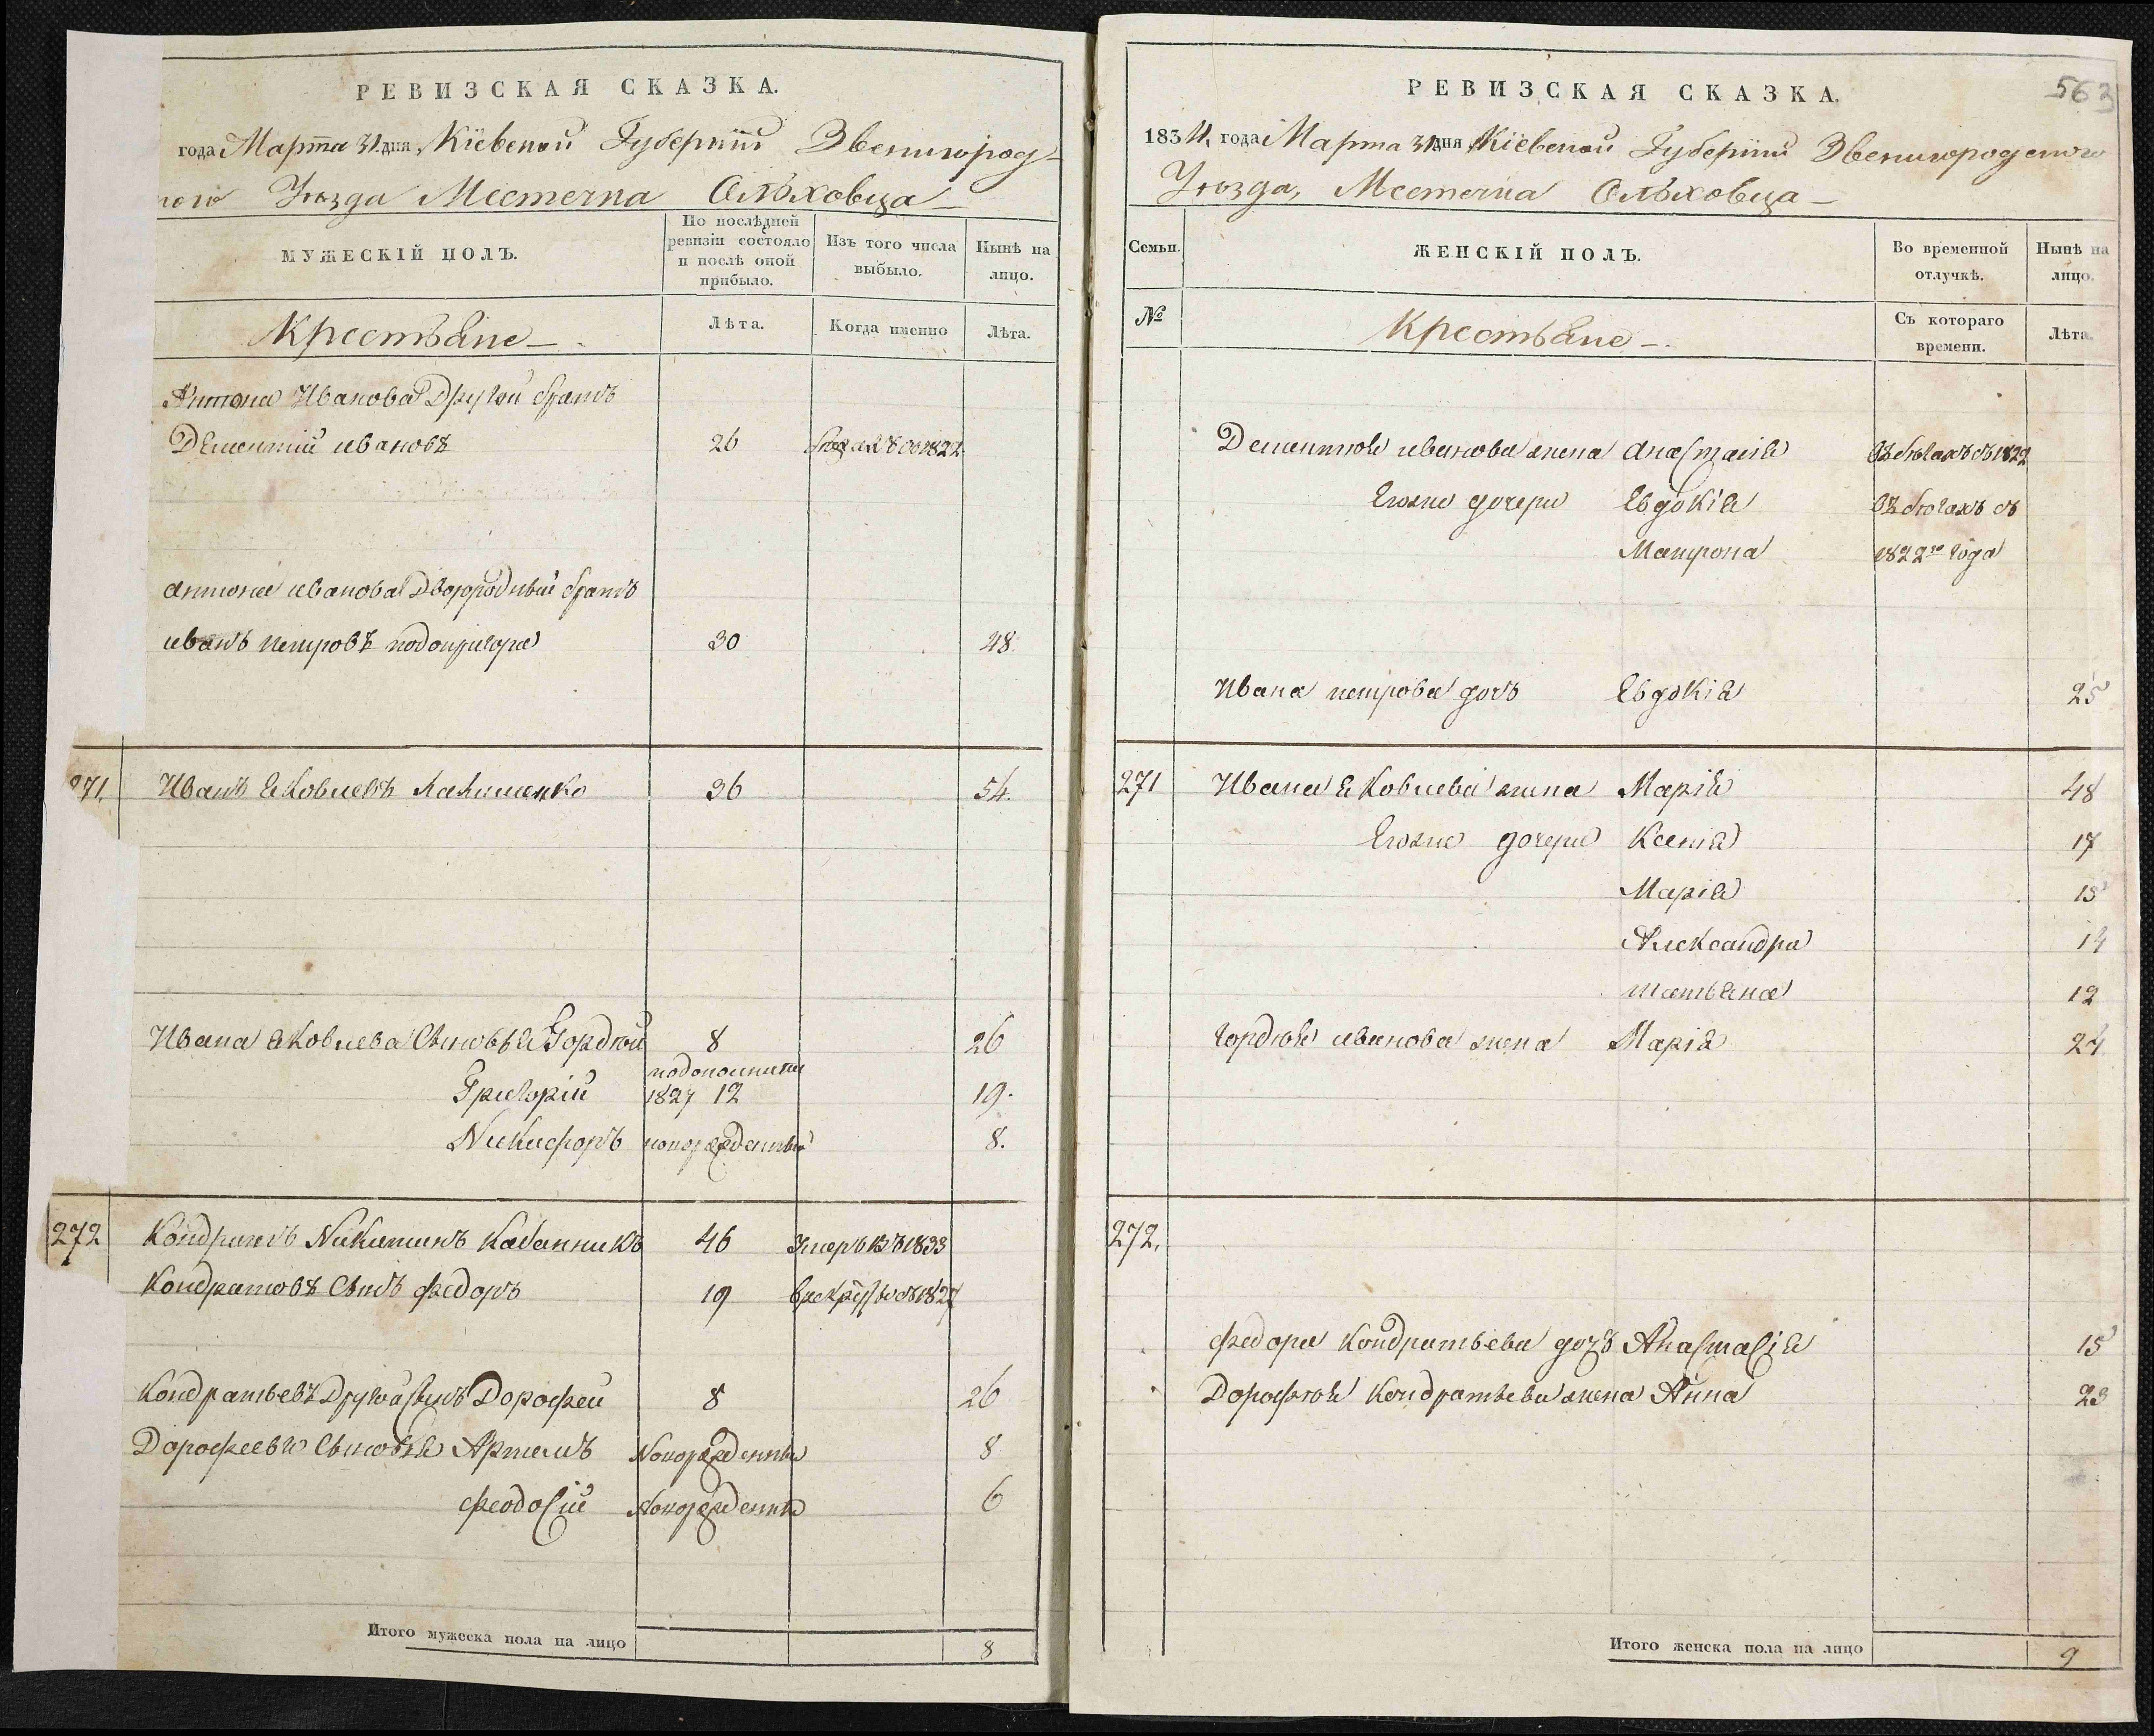 РЕВИЗСКАЯ СКАЗКА.
года Марта 31 дня, Кіевской Губерніи Звенигород-
ского Уѣзда Местечка Ольховца
МУЖЕСКІЙ ПОЛЪ.
По послѣдней ревизіи состояло и послѣ оной прибыло.
Изъ того числа выбыло.
Нынѣ на лицо.
Крестьяне
Лѣта.
Когда именно
Лѣта.
Антона Иванова Другой братъ
Дементій ивановъ 26 1822
антона иванова Двоюродный братъ
иванъ петровъ подопригора 30 48.
271. Иванъ Яковлевъ 36 54.
Ивана Яковлева Сыновья Гордѣй 8 26
Григорій 1827 12 19.
Никифоръ новорожденный 8.
272 Кондратъ Никитинъ Кабанникъ 46 Умеръ въ 1833
Кондратовъ Сынъ Федоръ 19 1827
Кондратьевъ Другой Сынъ Дорофей 8 26
Дорофеевы Сыновья Артемъ Новорожденный 8
Феодосій Новорожденный 6
Итого мужеска пола на лицо 8
РЕВИЗСКАЯ СКАЗКА.
563
1834, года Марта 31 дня Кіевской Губерніи Звенигородского
Уѣзда, Местечка Ольховца
Семьи.
ЖЕНСКІЙ ПОЛЪ.
Во временной отлучкѣ.
Нынѣ на лицо.
№
Крестьяне
Съ котораго времени.
Лѣта.
Дементія иванова жена анастасія въ бѣгахъ съ 1822
Егоже дочери Евдокія въ бѣгахъ съ
Матрона 1822го года
Ивана петрова дочь Евдокія 25
271 Ивана Яковлева жена Марія 48
Егоже дочери Ксенія 17
Марія 15
Александра 14
татьяна 12
гордѣя иванова жена Марія 24
272.
Федора Кондратьева дочь Анастасія 15
Дорофѣя Кондратьева жена Анна 23
Итого женска пола на лицо 9